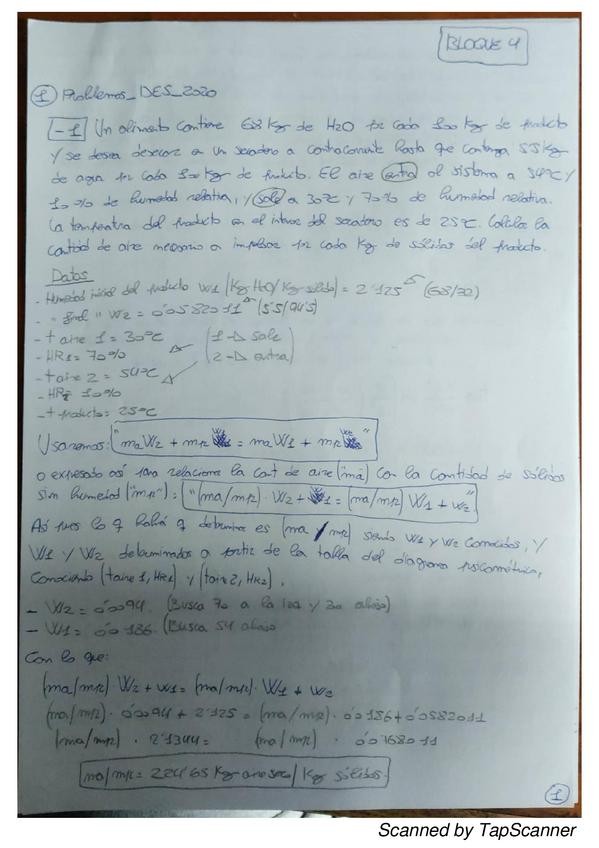 BLOQUE 4
1 Problemas_DES_2020
-1 Un alimento contiene 68 Kg de H2O por cada 100 Kg de producto
y se desea desecar en un secadero a contracorriente hasta que contenga 5'5 Kg
de agua por cada 100 Kg de producto. El aire entra al sistema a 54ºC y
10% de humedad relativa, y sale a 30ºC y 70% de humedad relativa.
La temperatura del producto en el interior del secadero es de 25ºC. Calcular la
cantidad de aire necesario a impulsar por cada Kg de sólidos del producto.
Datos
- Humedad inicial del producto W1 (Kg H2O/Kg sólido) = 2'125 (68/32)
- " final " W2 = 0'0582011 (5'5/94'5)
- t aire 1 = 30ºC (1 → sale
- HR1 = 70% 2 → entra)
- t aire 2 = 54ºC
- HR2 10%
- t producto = 25ºC
Usaremos: "maW2 + mp = maW1 + mp"
o expresado así para relacionar la cant de aire ("ma") con la cantidad de sólidos
sin humedad ("mp") = "(ma/mp) · W2 + 1 = (ma/mp) W1 + w2"
Así pues lo q habrá q determinar es (ma/mp) siendo W1 y W2 conocidos, y
W1 y W2 determinados a partir de la tabla del diagrama psicométrico,
conociendo (taire 1, HR1) y (taire 2, HR2).
- W2 = 0'0094 (Busca 70 a la izq y 30 abajo)
- W1 = 0'0186 (Busca 54 abajo
Con lo que:
(ma/mp) · W2 + w1 = (ma/mp) · W1 + w2
(ma/mp) · 0'0094 + 2'125 = (ma/mp) · 0'0186 + 0'0582011
(ma/mp) · 2'1344 = (ma/mp) · 0'0768011
ma/mp = 224'65 Kg aire seco / Kg sólidos.
1
Scanned by TapScanner